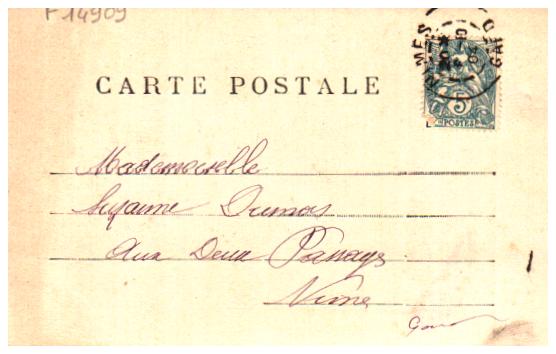 F 14909
NIMES GARD
CARTE POSTALE
5
POSTES
Mademoiselle
Suzanne Dumas
Aux Deux Passages
Nimes
Gard